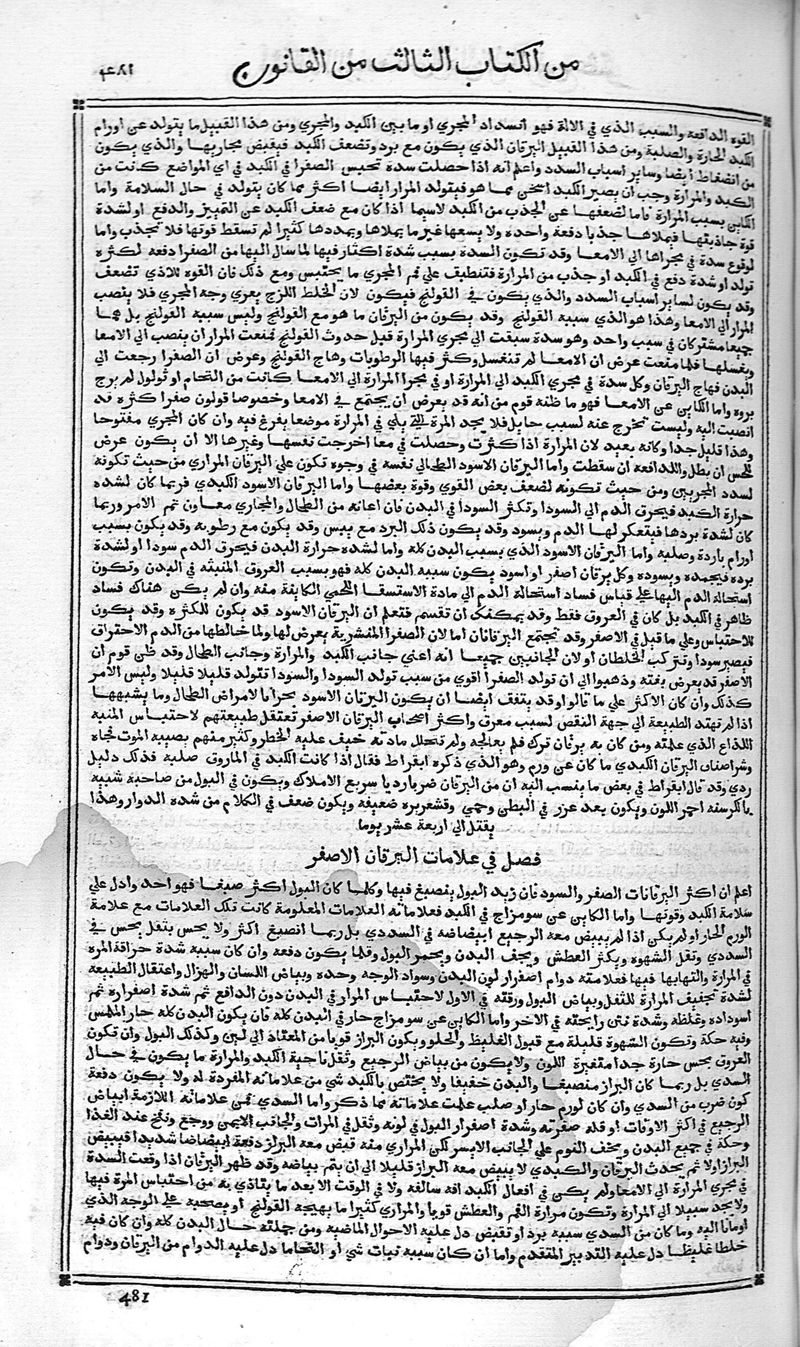 من الكتاب الثالث من القانون
٤٨١
القوه الدافعه والسبب الذي في الالة فهو انسداد المجري او ما بين الكبد والمجري ومن هذا القبيل ما يتولد عن اورام
الكبد الحارة والصلبة ومن هذا القبيل اليرقان الذي يكون مع برد وتضعف الكبد فيقبض مجاريها والذي يكون
من انضغاط ايضا وساير اسباب السدد واعلم انه اذا حصلت سدة تحبس الصفرا في الكبد في اي المواضع كانت من
الكبد والمرارة وجب ان يصير الكبد اسخن مما هو فيتولد المرار ايضا اكثر مما كان يتولد في حال السلامة واما
الكاين بسبب المرارة فاما لضعفها عن الجذب من الكبد لاسيما اذا كان مع ضعف الكبد عن التمييز والدفع او لشدة
قوة جاذبتها فيملاها جذبا دفعة واحده ولا يسعها غير ما يملاها ويمددها كثيرا لم تسقط قوتها فلا تجذب واما
لوقوع سدة في مجراها الي الامعا وقد تكون السدة بسبب شدة اكتنازفيها لما سال اليها من الصفرا دفعه لكثره
تولد او شدة دفع في الكبد او جذب من المرارة فتنطبق علي فم المجري ما يحتبس ومع ذلك فان القوه للاذي تضعف
وقد يكون لساير اسباب السدد والذي يكون في القولنج فيكون لان الخلط اللزج يغري وجه المجري فلا ينصب
المرار الي الامعا وهذا هو الذي سببه القولنج وقد يكون من اليرقان ما هو مع القولنج وليس سببه القولنج بل هما
جميعا مشتركان في سبب واحد وهو سدة سبقت الي مجري المرارة قبل حدوث القولنج فمنعت المرار ان ينصب الي الامعا
ويغسلها فلما منعت عرض ان الامعا لم تنغسل وكثر فيها الرطوبات وهاج القولنج وعرض ان الصفرا رجعت الي
البدن فهاج اليرقان وكل سدة في مجري الكبد الي المرارة او في مجرا المرارة الي الامعا كانت من التحام او ثولول لم يرج
بروه واما الكاين عن الامعا فهو ما ظنه قوم من انه قد يعرض ان يجتمع في الامعا وخصوصا قولون صفرا كثره قد
انصبت اليه وليست تخرج عنه لسبب حايل فلا يجد المرة التي في المرارة موضعا يفرغ فيه وان كان المجري مفتوحا
وهذا قليل جدا وكانه بعيد لان المرارة اذا كثرت وحصلت في معا اخرجت نفسها وغيرها الا ان يكون عرض
للحس ان بطل وللدافعه ان سقطت واما اليرقان الاسود الطحالي نفسه في وجوه تكون علي اليرقان المراري من حيث تكونه
لسدد المجريين ومن حيث تكونه لضعف بعض القوي وقوة بعضها واما اليرقان الاسود الكبدي فربما كان لشده
حرارة الكبد فيحرق الدم الي السودا وتكثر السودا في البدن فان اعانه من الطحال والمجاري معاون تم الامر وربما
كان لشدة بردها فيتعكر لها الدم ويسود وقد يكون ذلك البرد مع يبس وقد يكون مع رطوبه وقد يكون بسبب
اورام باردة وصلبه واما اليرقان الاسود الذي بسبب البدن كله واما لشده حرارة البدن فيحرق الدم سودا او لشدة
برده فيجمده ويسوده وكل يرقان اصفر او اسود يكون سببه البدن كله فهو بسبب العروق المنبثه في البدن وتكون
استحالة الدم اليها علي قياس فساد استحالة الدم الي مادة الاستسقا اللحمي الكاينة منه وان لم يكن هناك فساد
ظاهر في الكبد بل كان في العروق فقط وقد يمكنك ان تقسم فتعلم ان اليرقان الاسود قد يكون للكثره وقد يكون
للاحتباس وعلي ما قيل في الاصفر وقد تجتمع اليرقانان اما لان الصفرا المنتشرية يعرض لها ولما خالطها من الدم الاحتراق
فيصير سودا وتتركب الخلطان او لان الجانبين جميعا انه اعني جانب الكبد والمرارة وجانب الطحال وقد ظن قوم ان
الاصفر قد يعرض بغته وذهبوا الي ان تولد الصفرا اقوي من سبب تولد السودا والسودا تتولد قليلا قليلا وليس الامر
كذلك وان كان الاكثر علي ما قالوا وقد يتفق ايضا ان يكون اليرقان الاسود بحرانا لامراض الطحال وما يشبهها
اذا لم تهتد الطبيعة الي جهة النقص لسبب معرق واكثر اصحاب اليرقان الاصفر تعتقل طبيعتهم لاحتباس المنبه
اللذاع الذي علمته ومن كان به يرقان ترك فلم يعالجه ولم تتحلل مادته خيف عليه الخطر وكثير منهم يصيبه الموت فجاه
وشر اصناف اليرقان الكبدي ما كان عن ورم وهو الذي ذكره ابقراط فقال اذا كانت الكبد في الماروق صلبه فذلك دليل
ردي وقد قال ابقراط في بعض ما ينسب اليه ان من اليرقان ضربا رديا سريع الاهلاك ويكون في البول من صاحبه شبيه
بالكرسنه احمر اللون ويكون يعد غرز في البطن وحمي وقشعريره ضعيفه ويكون ضعف في الكلام من شده الدوار وهذا
يقتل الي اربعة عشر يوما
فصل في علامات اليرقان الاصفر
اعلم ان اكثر اليرقانات الصفر والسود فان زبد البول ينصبغ فيها وكلما كان البول اكثر صبغا فهو احمد وادل علي
سلامة الكبد وقوتها واما الكاين عن سو مزاج في الكبد فعلاماته العلامات المعلومة كانت تلك العلامات مع علامة
الورم الحار او لم يكن اذا لم يبيض معه الرجيع ابيضاضه في السددي بل ربما انصبغ اكثر ولا يحس بثقل يحس في
السددي وتقل الشهوه ويكثر العطش ويجف البدن ويحمر البول وقلما يكون دفعه وان كان سببه شدة حرافة المره
في المرارة والتهابها فيها فعلامته دوام اصفرار لون البدن وسواد الوجه وحده وبياض اللسان والهزال واعتقال الطبيعه
لشدة تجفيف المرارة للثفل وبياض البول ورقته في الاول لاحتباس المرار في البدن دون الدافع ثم شدة اصفراره ثم
اسوداده وغلظه وشدة نتن رايحته في الاخر واما الكاين عن سو مزاج حار في البدن كله فان يكون البدن كله حار الملمس
وفيه حكة وتكون الشهوة قليلة مع قبول الغليظ والحلو ويكون البراز قريبا من المعتاد الي لين وكذلك البول وان تكون
العروق بحس حارة جدا متغيرة اللون ولا يكون من بياض الرجيع وثقل ناحية الكبد والمرارة ما يكون في حال
السدي بل ربما كان البراز منصبغا والبدن خفيفا ولا يختص بالكبد شي من علاماته المفرده له ولا يكون دفعة
كون ضرب من السدي وان كان لورم حار او صلب علمت علاماته بما ذكر واما السدي فمن علاماته اللازمة ابيضاض
الرجيع في اكثر الاوقات او قله صفرته وشدة اصفرار البول في لونه وثقل في المرات والجانب الايمن ووجع ونفخ عند الغذا
وحكة في جميع البدن ويخف النوم علي الجانب الايسر لكن المراري منه قبض معه البراز دفعة ابيضاضا شديدا فيبيض
البراز اولا ثم يحدث اليرقان والكبدي لا يبيض معه البراز قليلا الي ان يتم بياضه وقد ظهر اليرقان اذا وقعت السدة
في مجري المرارة الي الامعا ولم يكن في افعال الكبد افه سالفه ولا في الوقت الا بعد ما يتاذي به من احتباس المرة فيها
ولا يجد سبيلا الي المرارة وتكون مرارة الفم والعطش قويا والمراري كثيرا ما يهيجه القولنج او يصحبه علي الوجه الذي
اومانا اليه وما كان من السدي سببه برد او تقبض دل عليه الاحوال الماضيه ومن جملته حال البدن كله وان كان فيه
خلطا غليظا دل عليه التدبير المتقدم واما ان كان سببه نبات شي او التحاما دل عليه الدوام من اليرقان ودوام
481